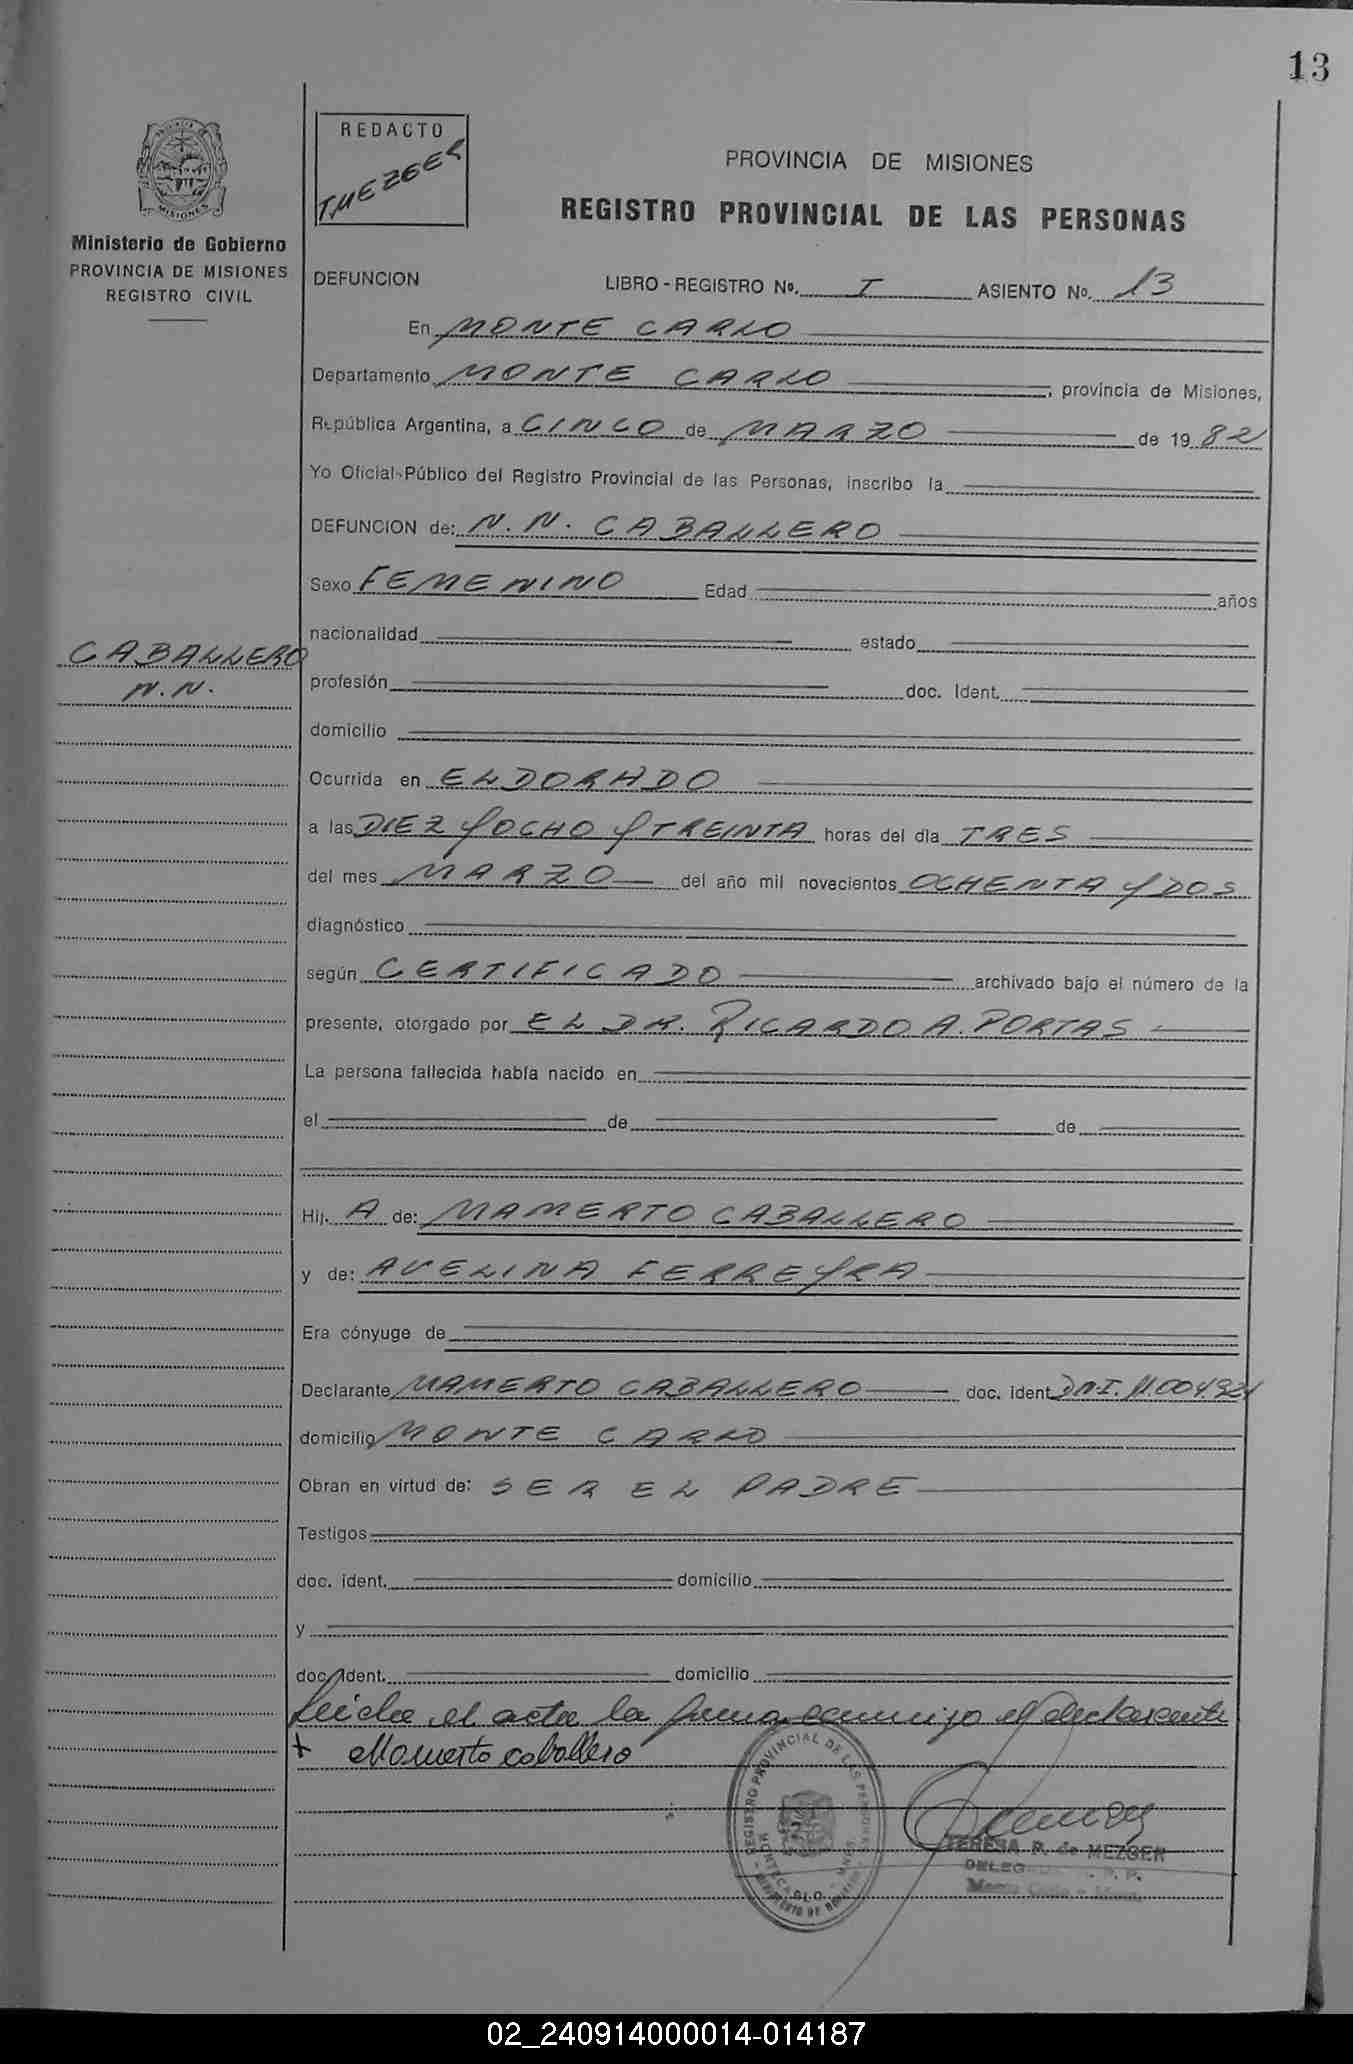 13
REDACTO
T.MEZGER
PROVINCIA DE MISIONES
REGISTRO PROVINCIAL DE LAS PERSONAS
MISIONES
Ministerio de Gobierno
PROVINCIA DE MISIONES
REGISTRO CIVIL
DEFUNCION LIBRO - REGISTRO Nº. I ASIENTO Nº. 13
En MONTE CARLO
Departamento MONTE CARLO, provincia de Misiones,
República Argentina, a CINCO de MARZO de 19 82
Yo Oficial Público del Registro Provincial de las Personas, inscribo la
DEFUNCION de: N. N. CABALLERO
Sexo FEMENINO Edad años
nacionalidad estado
CABALLERO
N. N.
profesión doc. Ident.
domicilio
Ocurrida en ELDORADO
a las DIEZ Y OCHO Y TREINTA horas del día TRES
del mes MARZO del año mil novecientos OCHENTA Y DOS
diagnóstico
según CERTIFICADO archivado bajo el número de la
presente, otorgado por EL DR. RICARDO A. PORTAS
La persona fallecida había nacido en
el de de
Hij. A de: MAMERTO CABALLERO
y de: AVELINA FERREYRA
Era cónyuge de
Declarante MAMERTO CABALLERO doc. ident D.N.I. 11.004.921
domicilio MONTE CARLO
Obran en virtud de: SER EL PADRE
Testigos
doc. ident. domicilio
y
doc. ident. domicilio
Leida el acta la firma conmigo el declarante
+ Mamerto caballero
REGISTRO PROVINCIAL DE LAS PERSONAS
TERESA R. de MEZGER
02_240914000014-014187